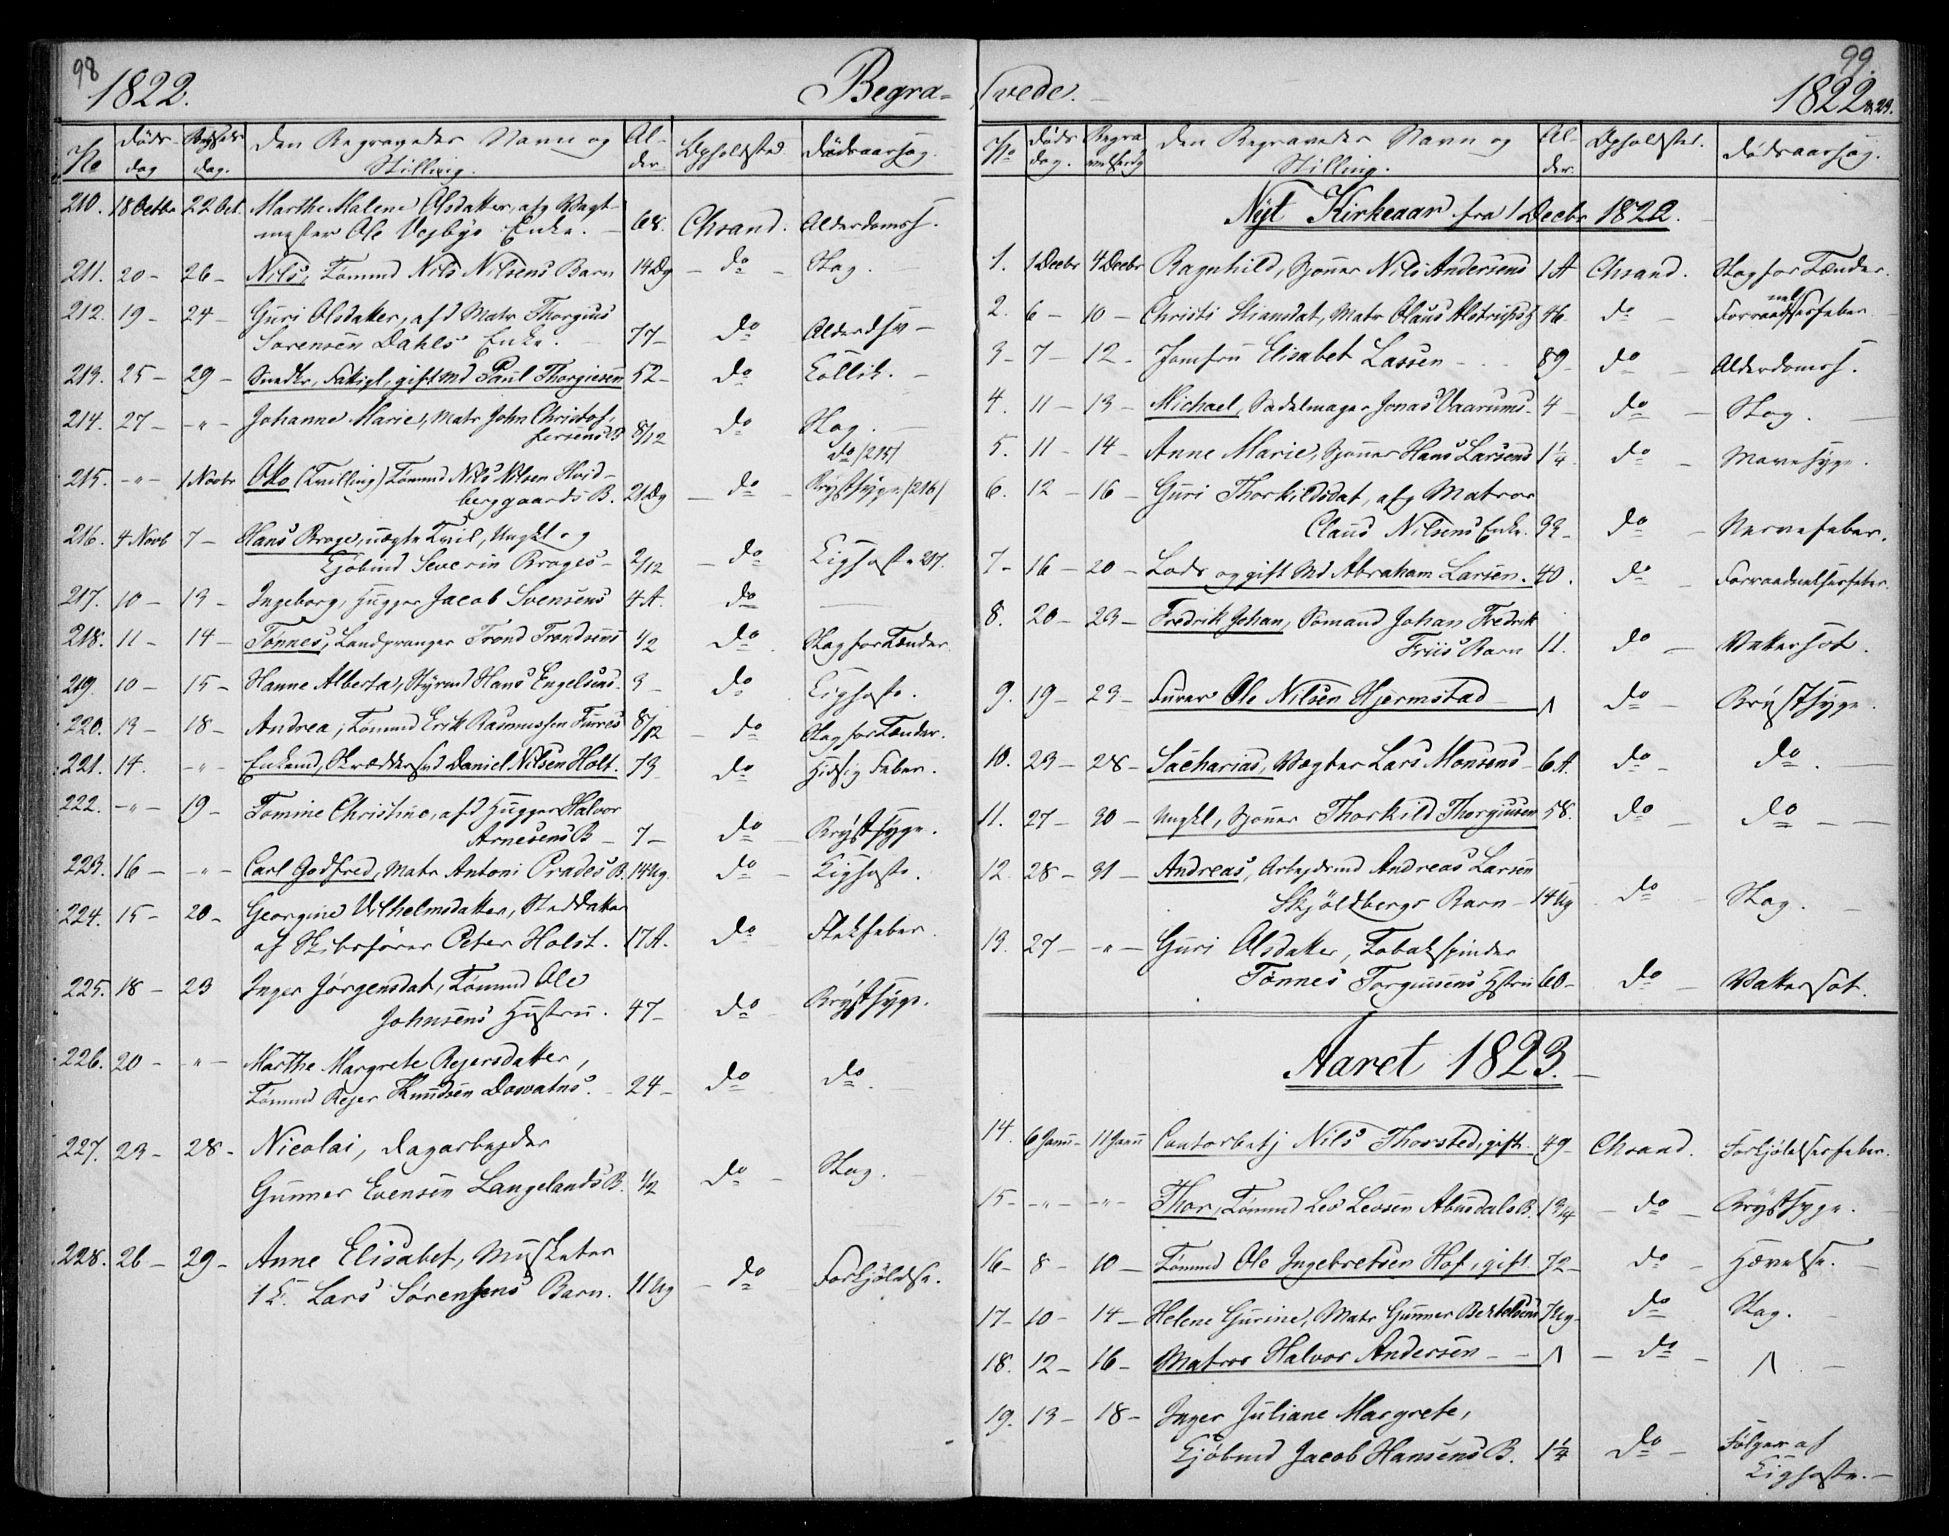 98
1822.
Begra-
No
Døds-
dag
dag.
Den Begravedes Navn og
Stilling.
Al-
der
Opholdsted
Dødsaarsag.
210. 18 Octbr 22 Oct. Marthe Malene Olsdatter, afg Vagt-
mester Ole Vejbye Enke. 68. Chsand. Alderdomss.
211. 20 - 26 - Nils, Tømmd Nils Nilsens Barn 14 Dg - do - Slag.
212. 19 - 24 - Guri Olsdatter, afd Matr Thorgius
Sørensen Dahls Enke. 77 - do
213. 25 - 29 - Snedkr, Fattigl, gift Md Paul Thorgiesen 52 - do Collik.
214. 27 - - " - Johanne Marie, Matr John Christof-
fersens B 8/12 do Slag.
do (215)
215. - " - 1 Novbr Otto (Tvilling) Tømmd Nils Nilsen Hvid-
berggaards B. 21 Dg - do - Brystsyge (216)
216. 4 Novb 7 - Hans Brage, uægte Tvil, Ungkl og
Kjøbmd Severin Brages - 2/12 - do Kighoste 217.
217. 10 - 13 - Ingeborg, Hugger Jacob Svensens 4 A. do
218. 11 - 14 - Tønnes, Landpranger Trond Trondsens 1/2 do Slag for Tænder.
219. 10 - 15 - Hanne Alberta, Styrmd Hans Engelsens. 3 - do Kighoste.
220. 13 - 18 - Andrea, Tømmd Erik Rasmussen Fures 8/12 - do Slag for Tænder.
221. 14. - " - Enkemd, Skræddersvd Daniel Nilsen Holt. 73 do Hidsig Feber.
222. - " - 19 - Tomine Christine, afd Hugger Halvor
Arnesens B - 7 - do Brystsyge.
223. 16 - - " - Carl Godfred, Matr Antoni Prades B. 14 Ug. do - Kighoste.
224. 15 - 20 - Georgine Vilhelmsdatter, Steddatter
af Skibsfører Peter Holst. 17 A. do Flekfeber.
225. 18 - 23 Inger Jørgensdat, Tømmd Ole
Johnsens Hustru. 47 - do - Brystsyge.
226. 20 - - " - Marthe Margrete Rejersdatter,
Tømmd Rejer Knudsen Dowatns. - 24 - do do.
227. 23 - 28 - Nicolai, Dagarbejder
Gunner Evensen Langelands B. 1/2 do - Slag.
228. 26 - 29 - Anne Elisabet, Musketer
1 C. Lars Sørensens Barn. 11 Ug - do - Forkjølelse.
99.
vede.
1822 & 23.
No
Døds
dag.
Begra
velsedg
Den Begravedes Navn og
Stilling.
Al-
der.
Opholdsted.
Dødsaarsag.
Nyt Kirkeaar fra 1 Decbr 1822.
1. 1 Decbr 4 Decbr Ragnhild, Spøner Nils Andersens 1 A Chsand. Slag for Tænder.
2. 6 - 10 - Christi Stiansdat, Matr Olaus Alstrups H 46 do - Forraadnelsesfeber
3 - 7 - 12 - Jomfru Elisabet Lassen - 89 - do - Alderdomss.
4. 11 - 13 - Michael, Sadelmager Jonas Vaarums - 4 - do - Slag.
5. 11 - 14 - Anne Marie, Spøner Hans Larsens 1 1/4 do - Mavesyge.
6. 12 - 16 - Guri Thorkildsdat, afg Matros
Claus Nilsens Enke. 93 - do - Nervefeber.
7 - 16 - 20 - Lods og gift Md Abraham Larsen. 40. do - Forraadnelsesfeber.
8. 20 - 23 - Fredrik Johan, Sømand Johan Fredrik
Friis Barn 11. do - Vatersot.
9. 19 - 23 - Furer Ole Nilsen Hjermstad - do - Brystsyge.
10. 23 - 28 - Sacharias, Vægter Lars Monsens - 6 A. do - do.
11. 27 - 30 - Ungkl, Spøner Thorkild Thorgiusen 58. do - do -
12. 28 - 31 - Andreas, Arbejdsmd Andreas Larsen
Skjøldbergs Barn - 14 Ug do - Slag.
13. 27 - - " - Guri Olsdatter, Tobakspinder
Tønnes Torgiusens Hstru 60 - do - Vatersot.
Aaret 1823.
14. 6 Janu - 11 Janu Contorbetj Nils Thorsted, gift. 49 - Chsand. Forkjølelsesfeber.
15 - - " - - " - Thor, Tømmd Leo Leosen Abusdals B. 1 3/4 - do - Brystsyge.
16 - 8 - 10 - Tømmd Ole Ingebretsen Hof, gift. 72 - do - Hævelse.
17 - 10 - 14 - Helene Gurine, Matr Gunner Bertelsens 7 Ug - do Slag.
18. 12 - 16 - Matros Halvor Andersen - - do -
19. 13 - 18 - Inger Juliane Margrete,
Kjøbmd Jacob Hansens B. 1 1/4 do - Følger af
Kighoste. -